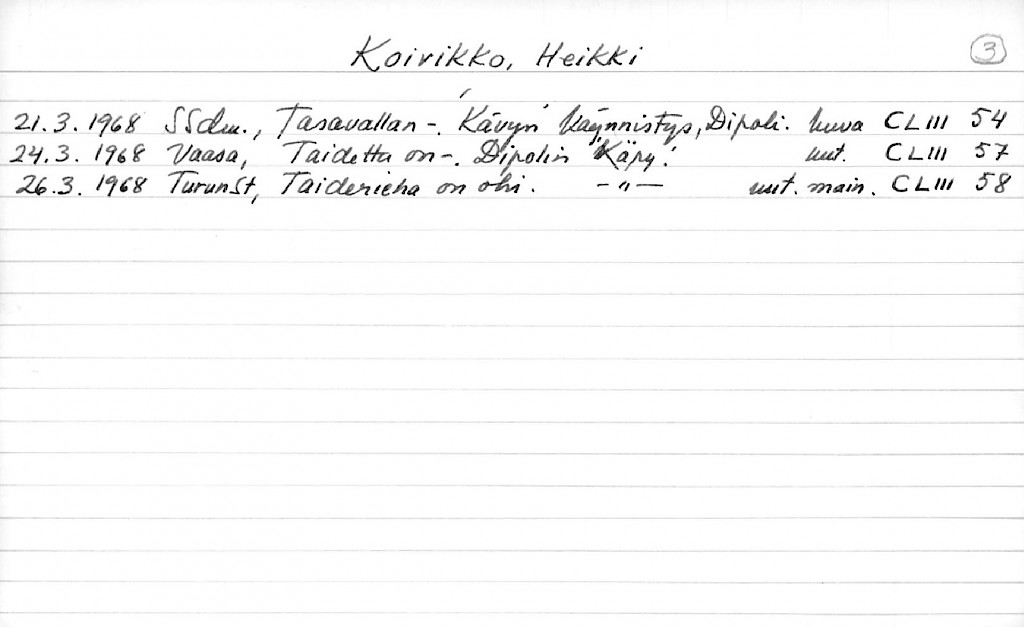 Koivikko, Heikki ③
21.3.1968 SSdm., Tasavallan -. 'Kävyn' käynnistys, Dipoli. kuva CLIII 54
24.3.1968 Vaasa, Taidetta on -. Dipolin 'Käpy'. uut. CLIII 57
26.3.1968 TurunSt, Taideriehа on ohi. -"- uut. main. CLIII 58